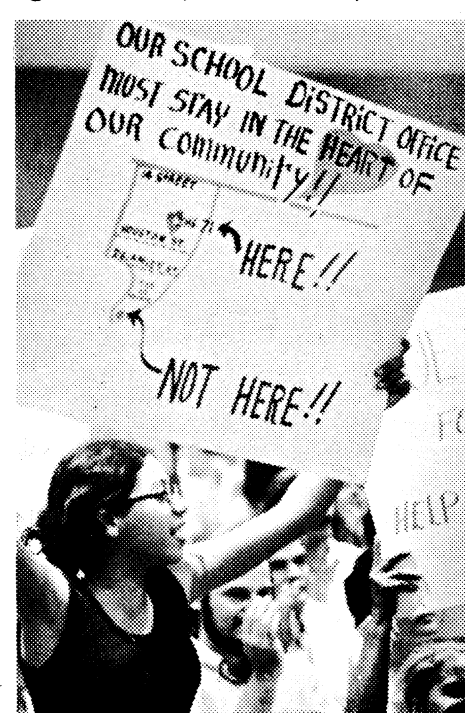 OUR SCHOOL DISTRICT OFFICE
MUST STAY IN THE HEART OF
OUR COMMUNITY!!
14 STREET
HOUSTON ST.
DELANCEY ST.
HERE!!
NOT HERE!!
HELP